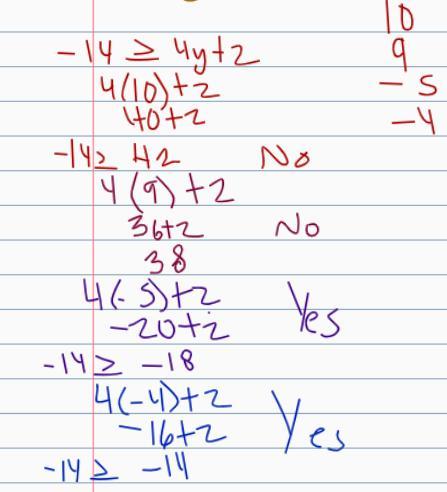 10
-14 ≥ 4y+2
9
4(10)+2
-5
40+2
-4
-14≥ 42 No
4(9)+2
36+2 No
38
4(-5)+2
-20+2 Yes
-14≥ -18
4(-4)+2
-16+2 Yes
-14≥ -14